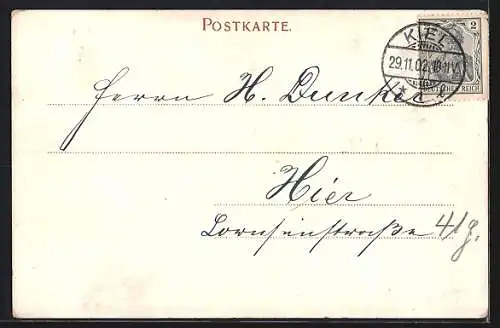 POSTKARTE.
KIEL
2
29.11.02.
DEUTSCHES REICH
Herrn H. Dunker
Hier
Lornsenstraße 41g.